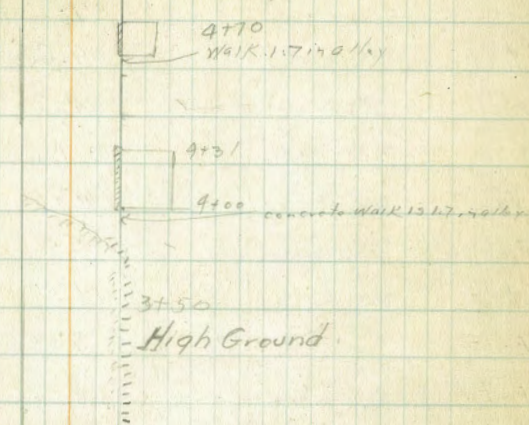 4+70
Walk 1.7 in alley
4+31
4+00 concrete Walk is 1.7 in alley
3+50
High Ground